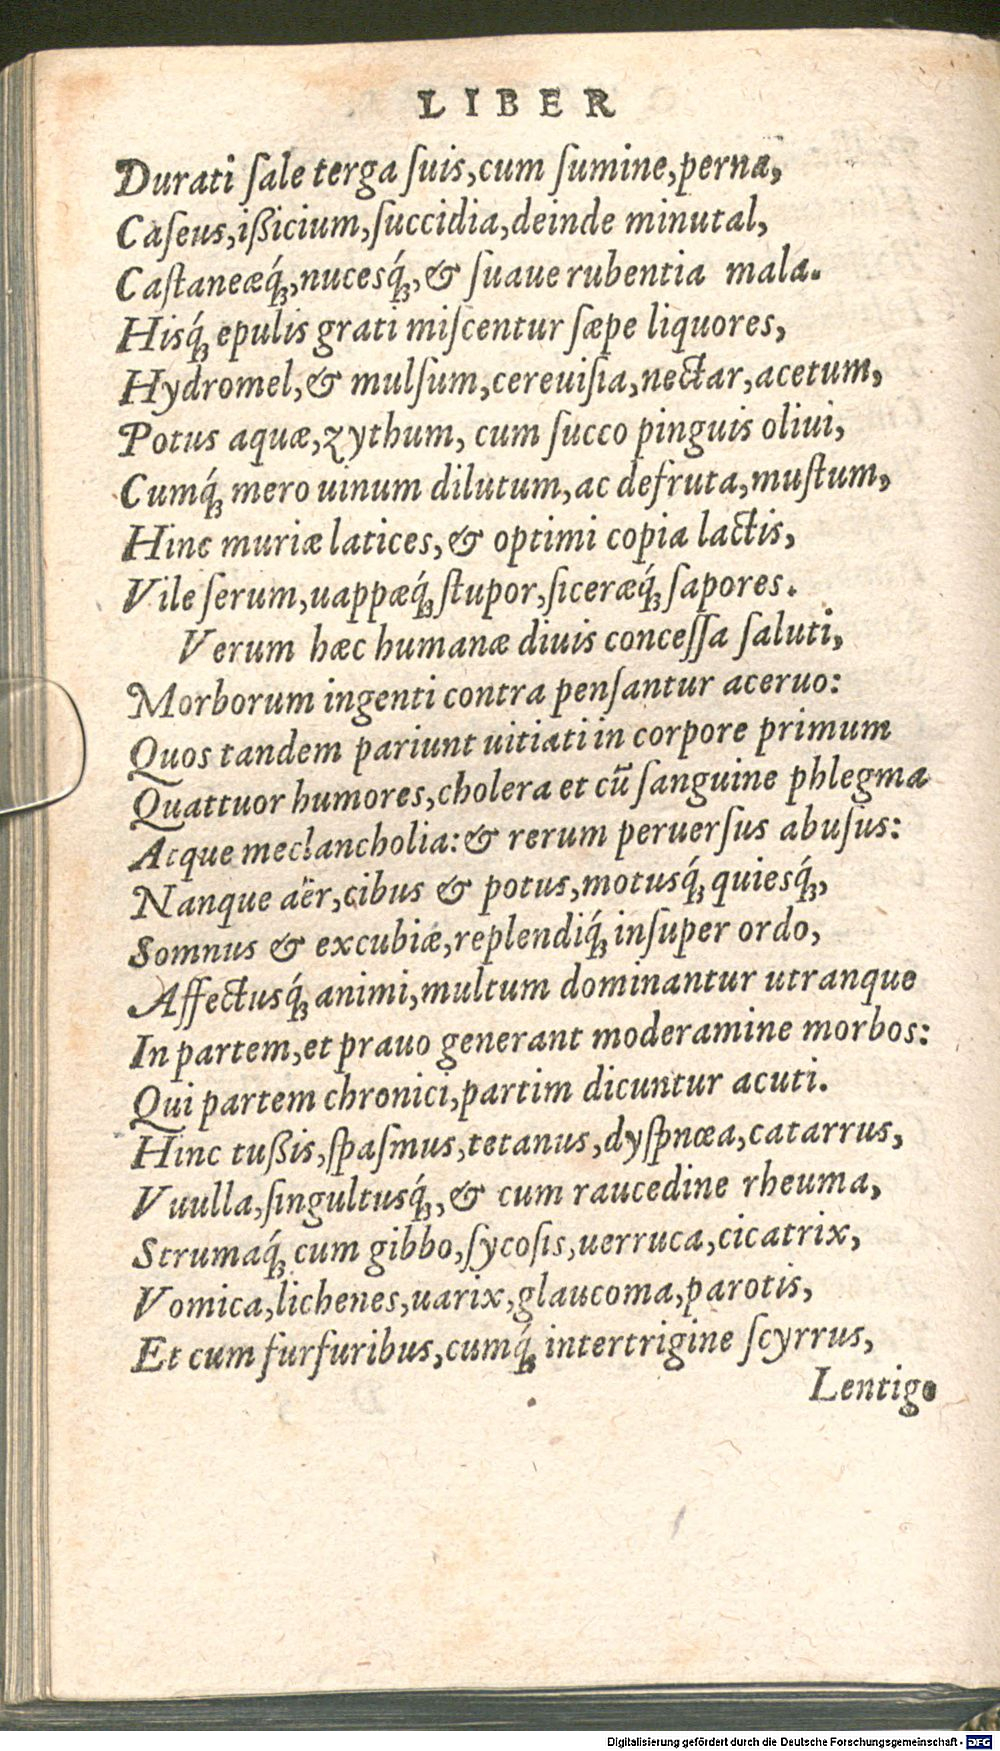 LIBER
Durati ſale terga ſuis,cum ſumine,perna,
Caſeus,ißicium,ſuccidia,deinde minutal,
Caſtaneæq́ꝫ,nucesq́ꝫ,& ſuaue rubentia mala.
Hisq́ꝫ epulis grati miſcentur ſæpe liquores,
Hydromel,& mulſum,cereuiſia,nectar,acetum,
Potus aquæ,zythum, cum ſucco pinguis oliui,
Cumq́ꝫ mero uinum dilutum,ac defruta,muſtum,
Hinc muriæ latices,& optimi copia lactis,
Vile ſerum,uappæq́ꝫ ſtupor,ſiceræq́ꝫ ſapores.
Verum hæc humanæ diuis conceſſa ſaluti,
Morborum ingenti contra penſantur aceruo:
Quos tandem pariunt uitiati in corpore primum
Quattuor humores,cholera et cū ſanguine phlegma
Atque meclancholia:& rerum peruerſus abuſus:
Nanque aër,cibus & potus,motusq́ꝫ quiesq́ꝫ,
Somnus & excubiæ,replendiq́ꝫ inſuper ordo,
Affectusq́ꝫ animi,multum dominantur utranque
In partem,et prauo generant moderamine morbos:
Qui partem chronici,partim dicuntur acuti.
Hinc tußis,ſpaſmus,tetanus,dyſpnœa,catarrus,
Vuulla,ſingultusq́ꝫ,& cum raucedine rheuma,
Strumaq́ꝫ cum gibbo,ſycoſis,uerruca,cicatrix,
Vomica,lichenes,uarix,glaucoma,parotis,
Et cum furfuribus,cumq́ꝫ intertrigine ſcyrrus,
Lentigo
Digitalisierung gefördert durch die Deutsche Forschungsgemeinschaft - DFG